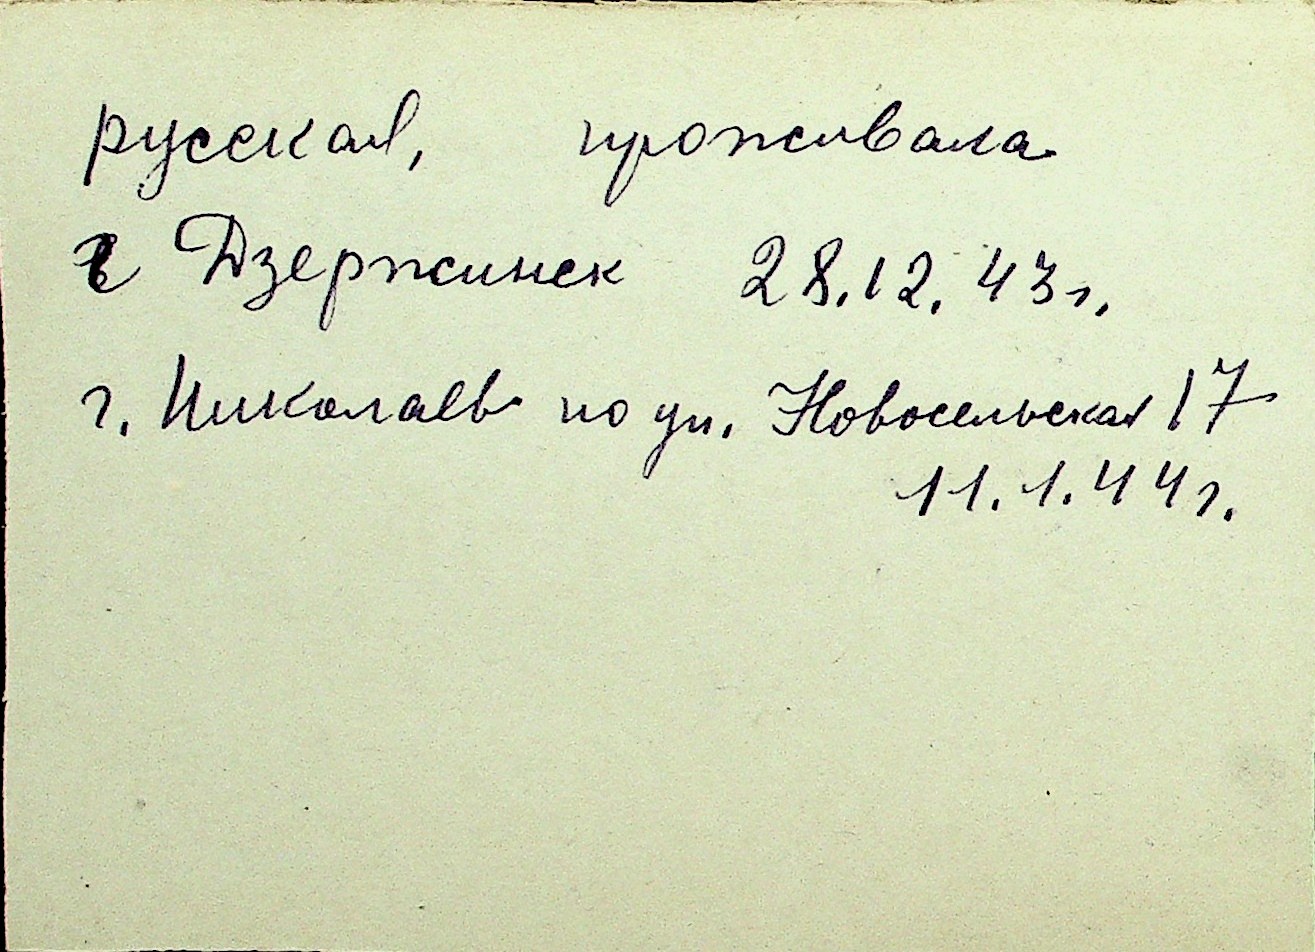 русская, проживала
в Дзержинск 28.12.43г.
г. Николаев по ул. Новосельская 17
11.1.44г.